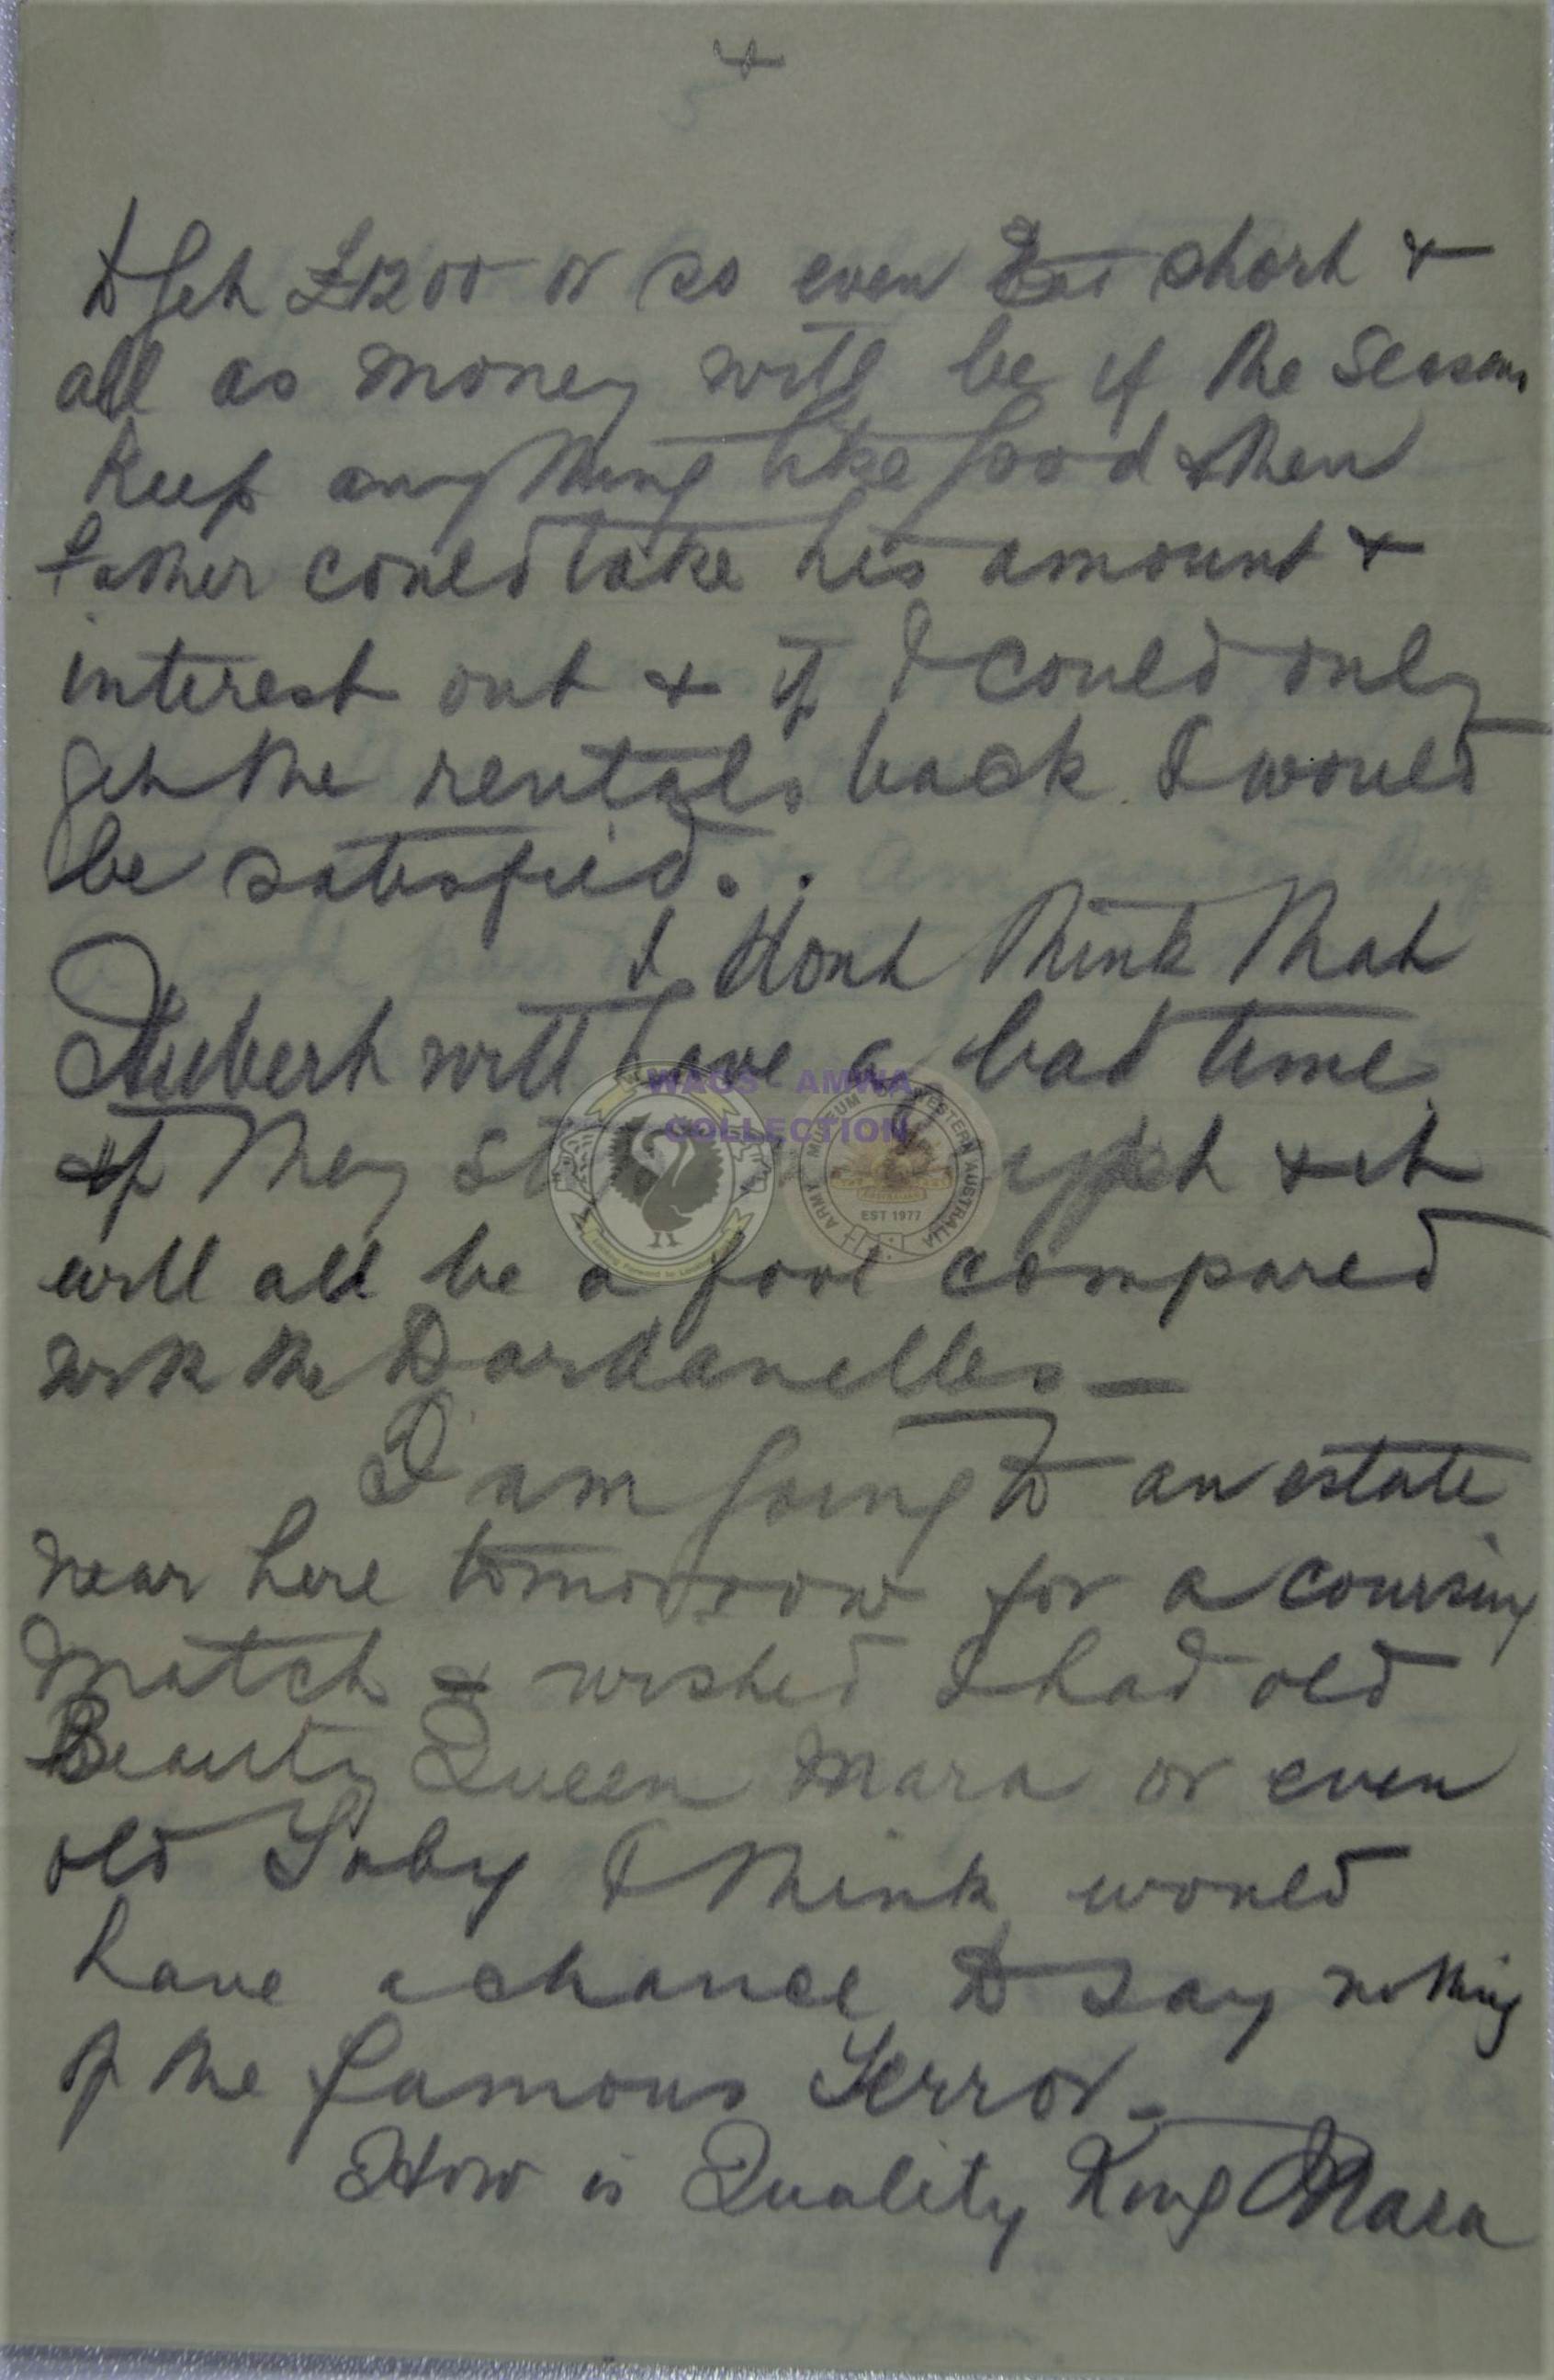 4
to get £1200 or so even short &
all as money will be if the seasons
keep anything like good & then
Father could take his amount &
interest out & if I could only
get the rentals back I would
be satisfied.
I dont think that
Hubert will have a bad time
if they & it
will all be a compared
with the Dardanelles —
I am going to an estate
near here tomorrow for a coursing
match & wished I had old
Beauty Queen Mara or even
old I think would
have a chance to say nothing
of the famous Terror —
How is Quality King Mara
WAGS - AMWA
COLLECTION
ARMY MUSEUM OF WESTERN AUSTRALIA
EST 1977